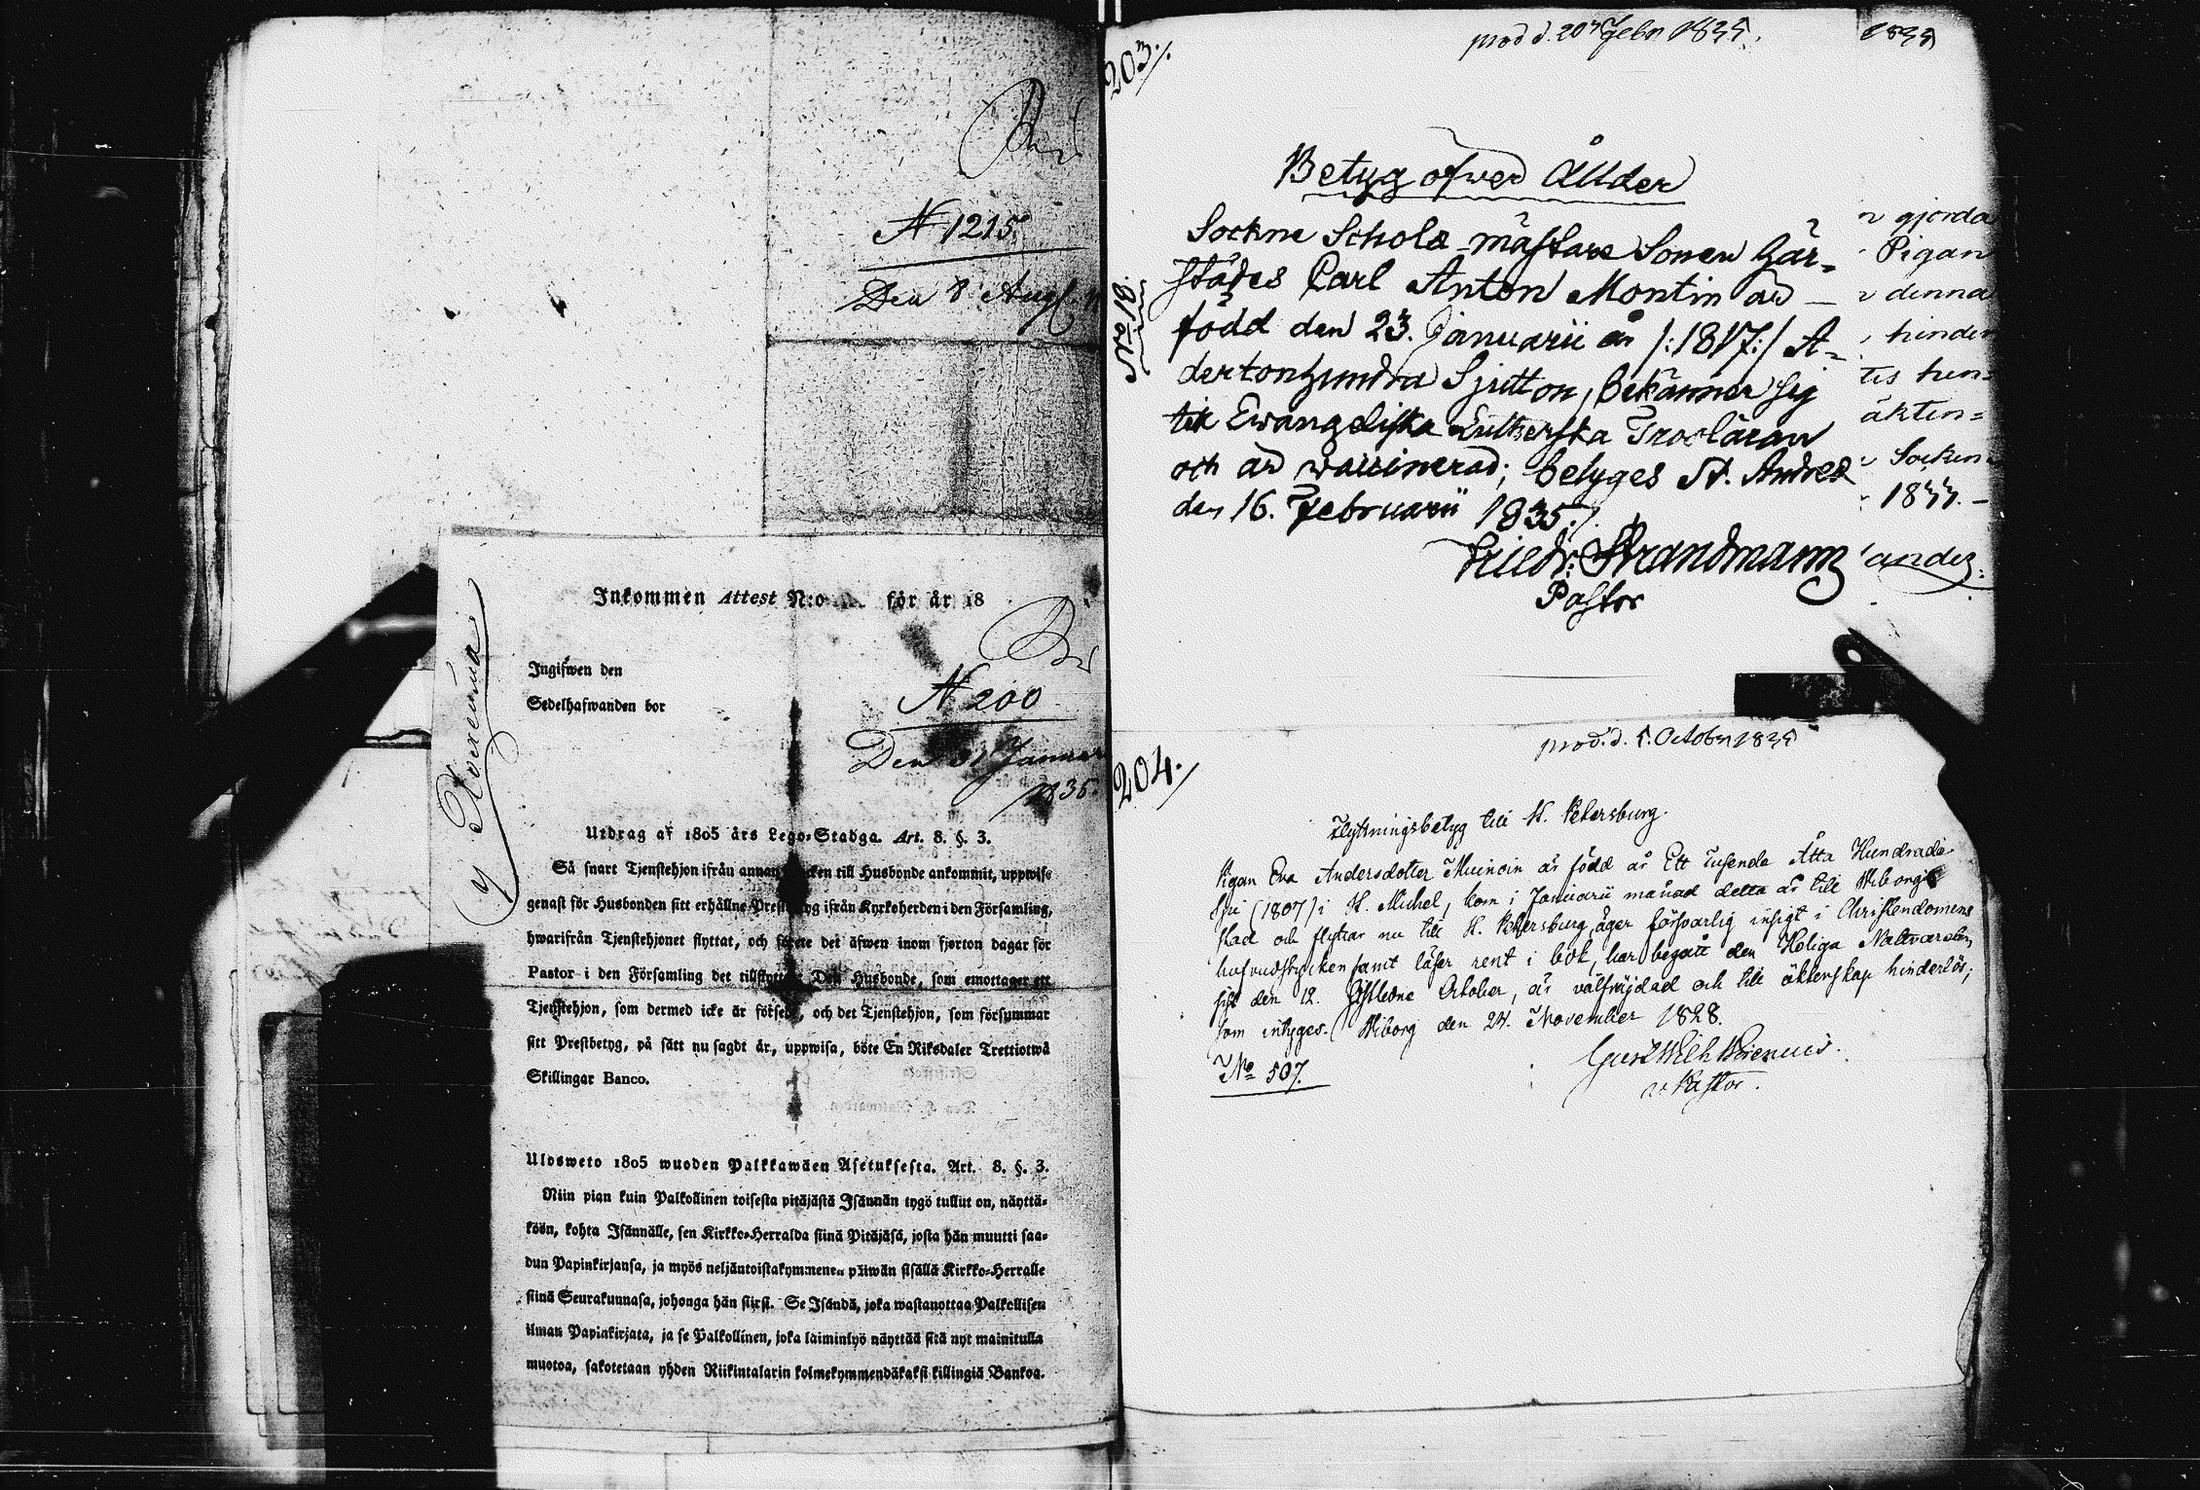 N 1215
Den 8 Aug
Inkommen Attest N:o för år 18
Ingifwen den
Sedelhafwanden bor
N 200
Den 31 Januar
1835.
Utdrag af 1805 års Lego-Stadga. Art. 8. §. 3.
Så snart Tjenstehjon ifrån annan till Husbonde ankommit, uppwise
genast för Husbonden sitt erhållne ifrån Kyrkoherden i den Församling,
hwarifrån Tjenstehjonet flyttat, och det äfwen inom fjorton dagar för
Pastor i den Församling det Den Husbonde, som emottager ett
Tjenstehjon, som dermed icke är och det Tjenstehjon, som försummar
sitt Prestbetyg, på sätt nu sagdt är, uppwisa, böte En Riksdaler Trettiotwå
Skillingar Banco.
Ulosweto 1805 wuoden Palkkawäen Asetuksesta. Art. 8. §. 3.
Niin pian kuin Palkollinen toisesta pitäjästä Isännän tygö tullut on, näyttä-
köön, kohta Isännälle, sen Kirkko-Herralda siinä Pitäjäsä, josta hän muutti saa-
dun Papinkirjansa, ja myös neljäntoistakymmenen päiwän sisällä Kirkko-Herralle
siinä Seurakunnasa, johonga hän siirsi. Se Isändä, joka wastanottaa Palkollisen
ilman Papinkirjata, ja se Palkollinen, joka laiminlyö näyttää sitä nyt mainitulla
muotoa, sakotetaan yhden Riikintalarin kolmekymmendäkaksi killingiä Bankoa.
203/.
prod d. 20 Febr 1835.
Betyg öfwer Ållder
No 18.
Sockne Schole-mästare Sonen här-
städes Carl Anton Montin är
född den 23. Januarii år /:1817:/ A-
dertonhundra Sjutton, bekänner sig
till Ewangeliska Lutherska Trosläran
och är waccinerad; betyges St. Andreæ
den 16. Februarii 1835./.
Friedr: Strandmann
Pastor
gjorda
Pigan
denna
hinder
äkten=
Socken
204./
prod. d. 5. October 1835
Flyttningsbetyg till St. Petersburg.
Pigan Eva Andersdotter Muinoin är född år Ett Tusende Åtta Hundrade
Sju (1807) i St. Michel, kom i Januarii månad detta år till Wiborgs
stad och flyttar nu till St. Petersburg, äger försvarlig insigt i Christendomens
hufvudstycken samt läser rent i bok, har begått den Heliga Nattvarden
sist den 12. sistledne October, är välfrejdad och till äktenskap hinderlös;
som intygas. Wiborg den 24. November 1828.
No 507.
v. Pastor.